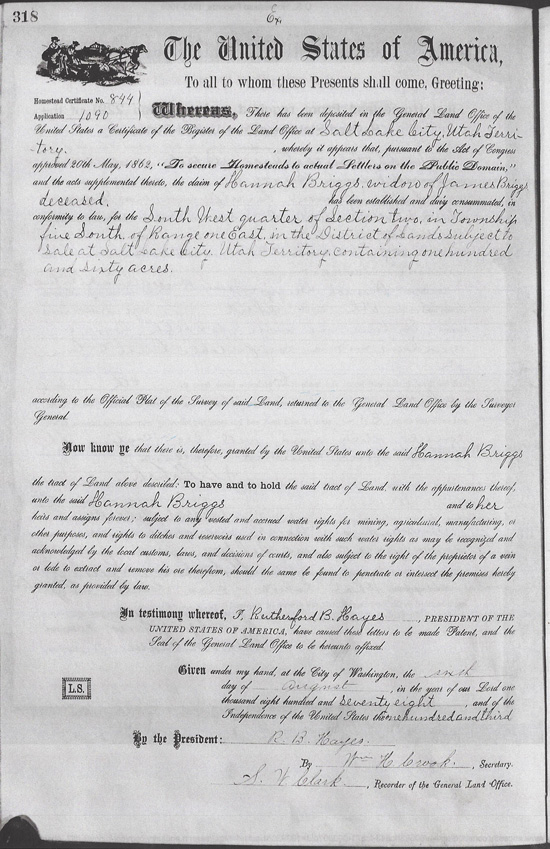 318
Ex
The United States of America,
To all to whom these Presents shall come, Greeting:
Homestead Certificate No. 844
Application 1090
Whereas, There has been deposited in the General Land Office of the
United States a Certificate of the Register of the Land Office at Salt Lake City, Utah Terri-
tory. , whereby it appears that, pursuant to the Act of Congress
approved 20th May, 1862, "To secure Homesteads to actual Settlers on the Public Domain,"
and the acts supplemental thereto, the claim of Hannah Briggs, widow of James Briggs
deceased, has been established and duly consummated, in
conformity to law, for the South West quarter of Section two, in Township
five South, of Range one East, in the District of Lands Subject to
Sale at Salt Lake City, Utah Territory, Containing one hundred
and sixty acres.
according to the Official Plat of the Survey of said Land, returned to the General Land Office by the Surveyor
General.
Now know ye that there is, therefore, granted by the United States unto the said Hannah Briggs
the tract of Land above described: To have and to hold the said tract of Land, with the appurtenances thereof,
unto the said Hannah Briggs and to her
heirs and assigns forever; subject to any vested and accrued water rights for mining, agricultural, manufacturing, or
other purposes, and rights to ditches and reservoirs used in connection with such water rights as may be recognized and
acknowledged by the local customs, laws, and decisions of courts, and also subject to the right of the proprietor of a vein
or lode to extract and remove his ore therefrom, should the same be found to penetrate or intersect the premises hereby
granted, as provided by law.
In testimony whereof, I, Rutherford B. Hayes , PRESIDENT OF THE
UNITED STATES OF AMERICA, have caused these letters to be made Patent, and the
Seal of the General Land Office to be hereunto affixed.
Given under my hand, at the City of Washington, the sixth
L.S.
day of August , in the year of our Lord one
thousand eight hundred and seventy eight , and of the
Independence of the United States the one hundred and third
By the President: R. B. Hayes.
By Wm H. Crook. , Secretary.
S. W Clark. , Recorder of the General Land Office.